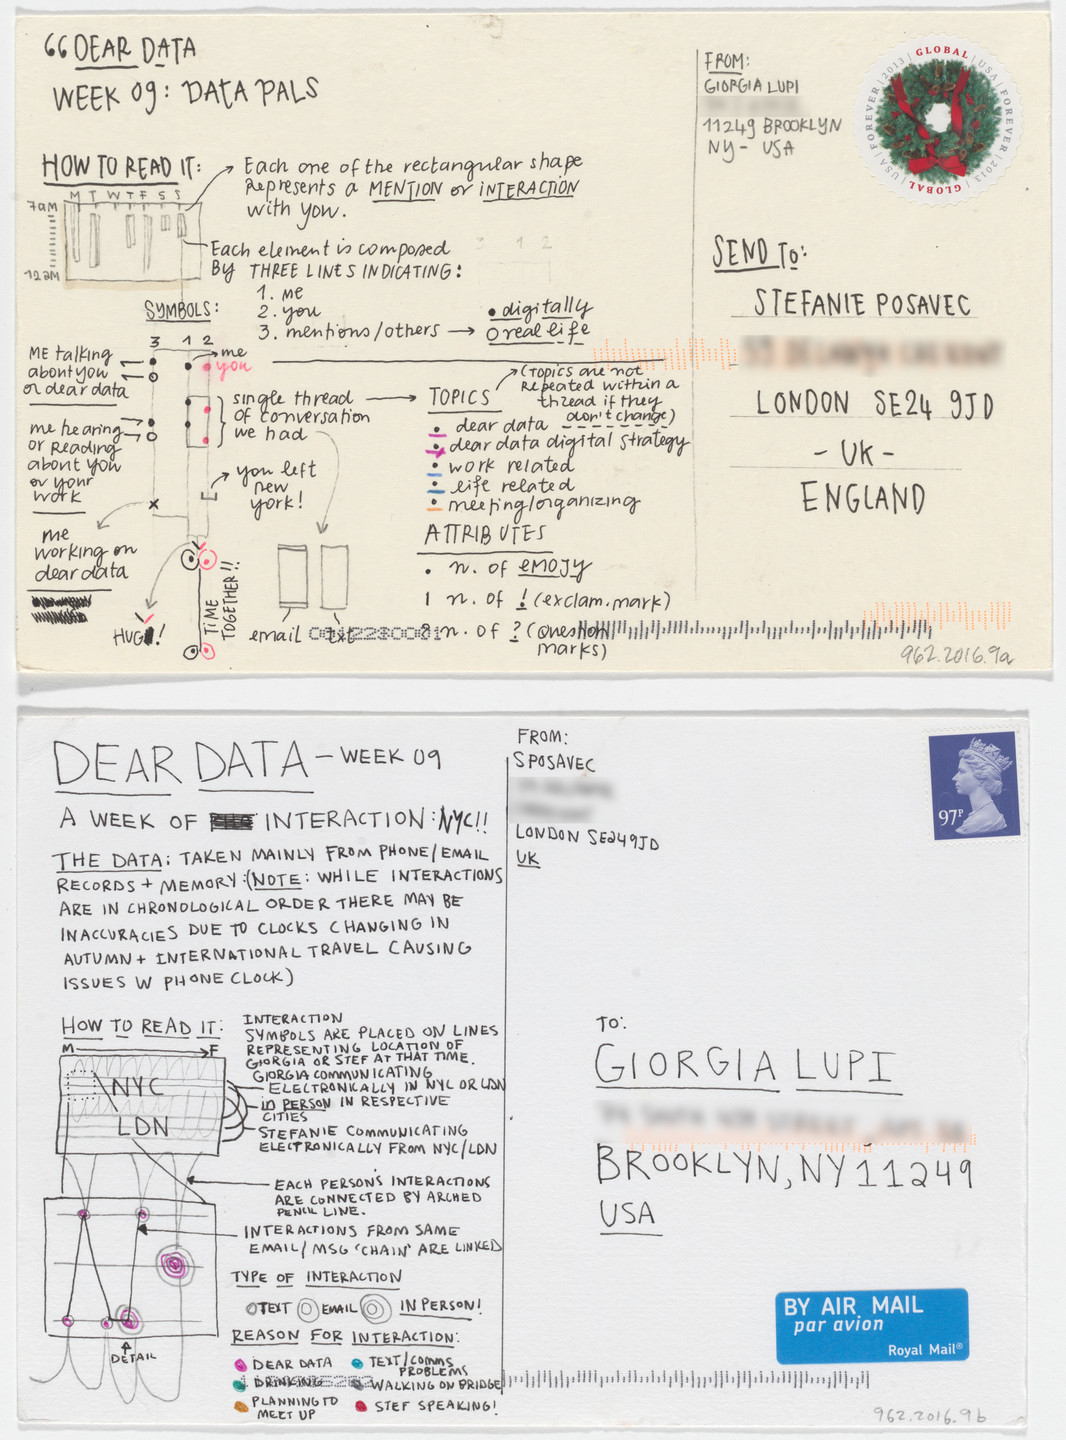 DEAR DATA
WEEK 09: DATA PALS
HOW TO READ IT:
M T W T F S S
7AM
12AM
Each one of the rectangular shape
Represents a MENTION or INTERACTION
with you.
Each element is composed
BY THREE LINES INDICATING:
1. me
2. you
3. mentions/others → digitally
real life
3 1 2
SYMBOLS:
3 1 2
me
you
ME talking
about you
or dear data
me hearing
or reading
about you
or your
work
me
working on
dear data
HUG!
single thread
of conversation
we had
you left
new
york!
TIME
TOGETHER!!
email txt
TOPICS
(TOPICS are not
repeated within a
thread if they
don't change)
dear data
dear data digital strategy
work related
life related
meeting/organizing
ATTRIBUTES
. n. of emojy
l n. of ! (exclam. mark)
n. of ? (question
marks)
FROM:
GIORGIA LUPI
11249 BROOKLYN
NY - USA
GLOBAL | USA | FOREVER | 2013 | GLOBAL | USA | FOREVER | 2013
SEND TO:
STEFANIE POSAVEC
LONDON SE24 9JD
- UK -
ENGLAND
962.2016.9a
DEAR DATA - WEEK 09
A WEEK OF INTERACTION: NYC!!
THE DATA: TAKEN MAINLY FROM PHONE/EMAIL
RECORDS + MEMORY: (NOTE: WHILE INTERACTIONS
ARE IN CHRONOLOGICAL ORDER THERE MAY BE
INACCURACIES DUE TO CLOCKS CHANGING IN
AUTUMN + INTERNATIONAL TRAVEL CAUSING
ISSUES W PHONE CLOCK)
HOW TO READ IT:
M F
NYC
LDN
INTERACTION
SYMBOLS ARE PLACED ON LINES
REPRESENTING LOCATION OF
GIORGIA OR STEF AT THAT TIME.
GIORGIA COMMUNICATING
ELECTRONICALLY IN NYC OR LDN
IN PERSON IN RESPECTIVE
CITIES
STEFANIE COMMUNICATING
ELECTRONICALLY FROM NYC/LDN
EACH PERSON'S INTERACTIONS
ARE CONNECTED BY ARCHED
PENCIL LINE.
INTERACTIONS FROM SAME
EMAIL/MSG 'CHAIN' ARE LINKED
DETAIL
TYPE OF INTERACTION
TEXT EMAIL IN PERSON!
REASON FOR INTERACTION:
DEAR DATA
DRINKING
PLANNING TO
MEET UP
TEXT/COMMS
PROBLEMS
WALKING ON BRIDGE
STEF SPEAKING!
FROM:
S POSAVEC
LONDON SE249JD
UK
97P
TO:
GIORGIA LUPI
BROOKLYN, NY 11249
USA
BY AIR MAIL
par avion
Royal Mail®
962.2016.9b